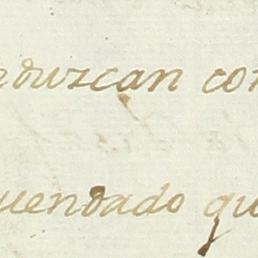 aduzcan con
uendado qu